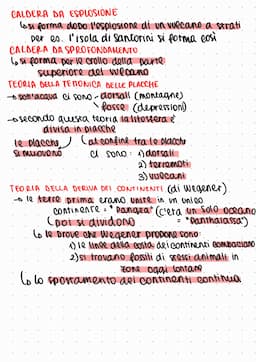 CALDERA DA ESPLOSIONE
↳ si forma dopo l'esplosione di un vulcano a strati
per es. l'isola di Santorini si forma così
CALDERA DA SPROFONDAMENTO
↳ si forma per le crollo della parte
superiore del vulcano
TEORIA DELLA TETTONICA DELLE PLACCHE
→ sott'acqua ci sono - dorsali (montagne)
- fosse (depressioni)
→ secondo questa teoria la litosfera è
divisa in placche
le placche si muovono
al confine tra le placche
ci sono: 1) dorsali
2) terremoti
3) vulcani
TEORIA DELLA DERIVA DEI CONTINENTI (di Wegener)
→ le terre prima erano unite in un unico
continente = "Pangea" (c'era un solo oceano
= "Panthalassa")
poi si dividono
↳ le prove che Wegener propone sono:
1) le linee della costa dei continenti combaciano
2) si trovano fossili di stessi animali in
zone oggi lontane
↳ lo spostamento dei continenti continua